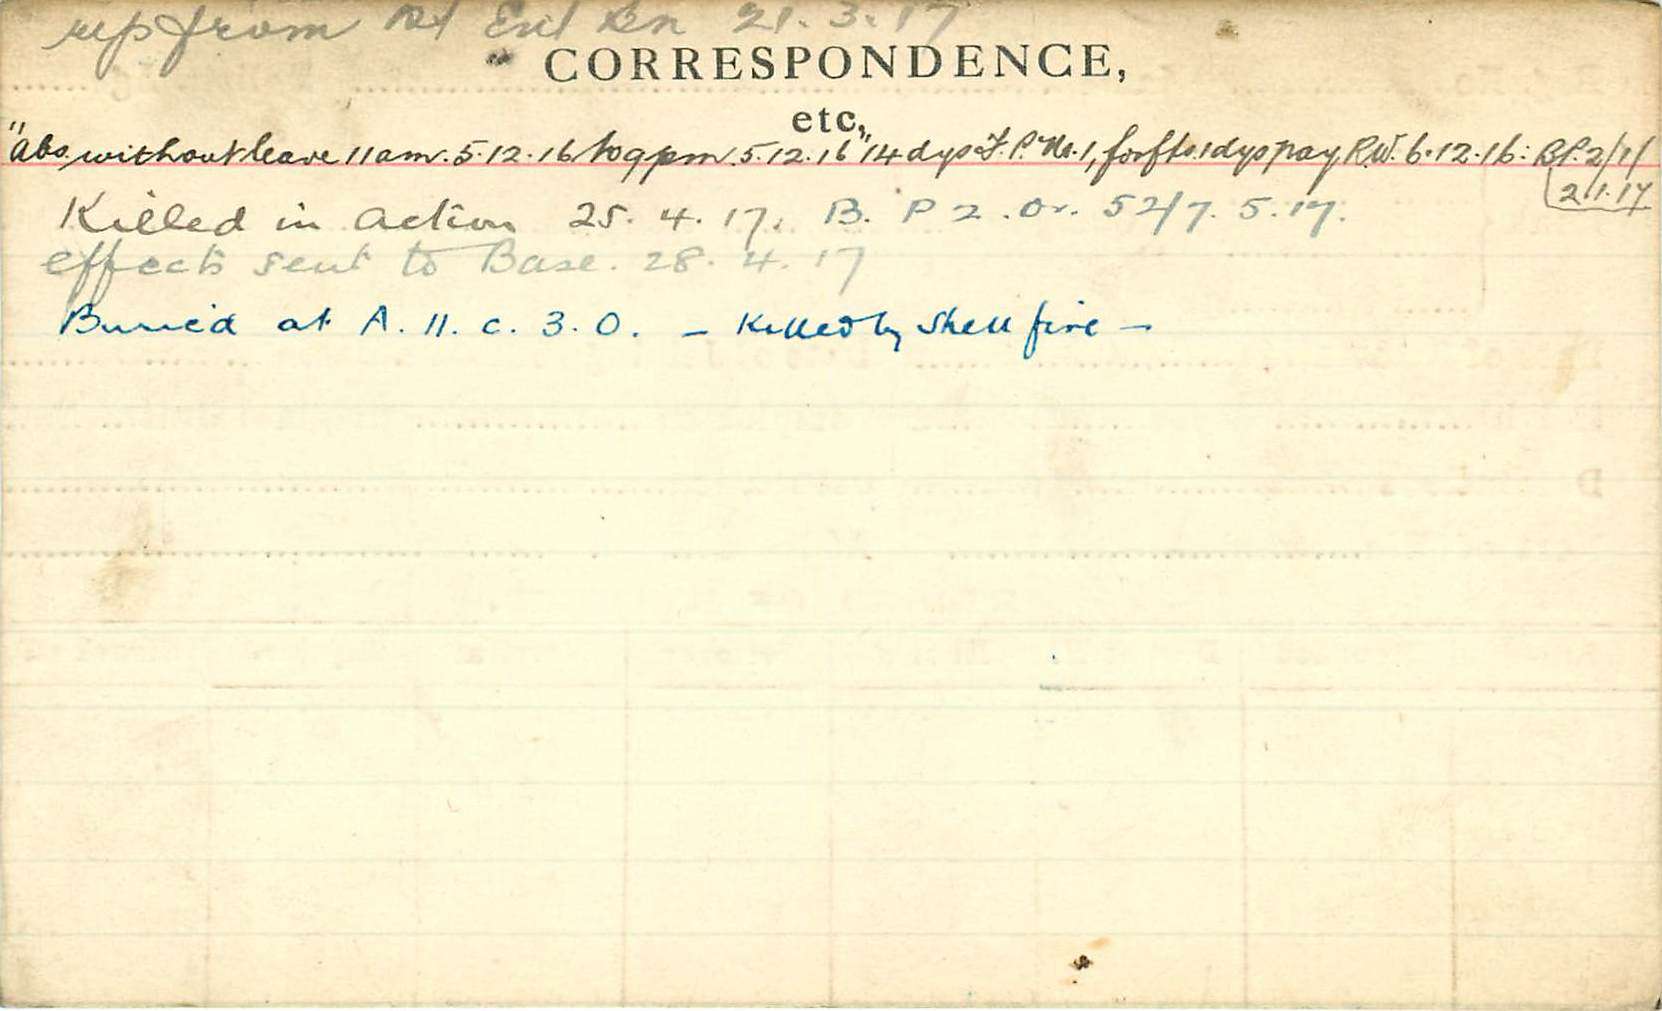 up from Rd Ent Bn 21.3.17
CORRESPONDENCE,
etc.
"abs. without leave 11am. 5.12.16 to 9pm. 5.12.16" 14 dys F.P. No. 1, forfts. 1 dys pay R.W. 6.12.16: BP. 2/1/
2.1.17
Killed in action 25.4.17. B. P 2. Or. 52/7.5.17.
effects sent to Base. 28.4.17
Buried at A.11.c.3.0. - Killed by Shell fire -